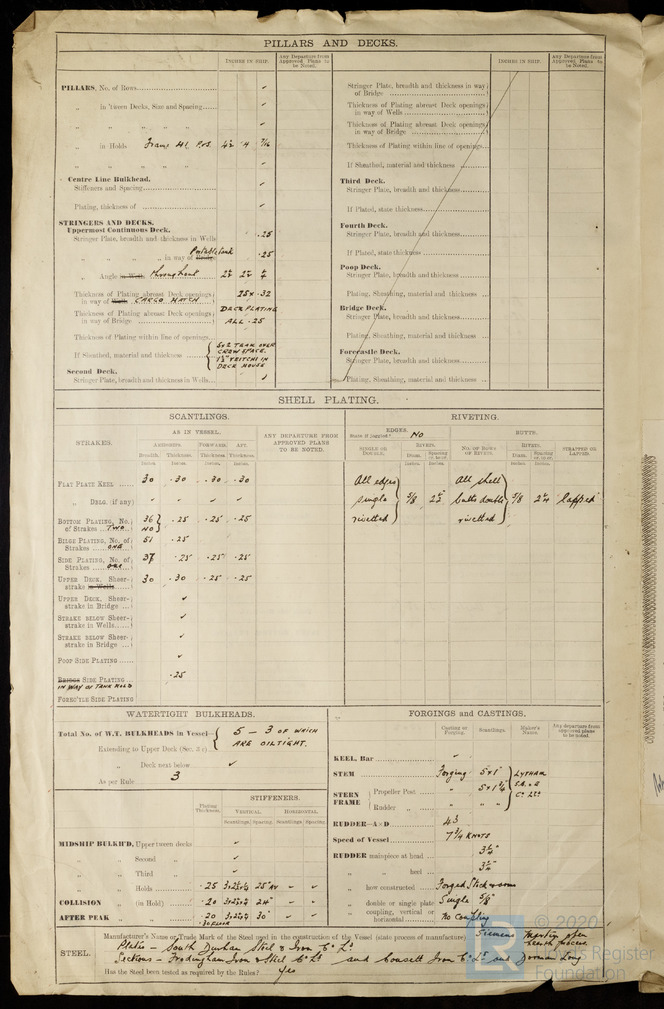 PILLARS AND DECKS.
INCHES IN SHIP.
Any Departure from Approved Plans to be Noted.
INCHES IN SHIP.
Any Departure from Approved Plans to be Noted.
PILLARS, No. of Rows
„ in 'tween Decks, Size and Spacing
„ „ „ „
„ in Holds
„ „ „ „
Centre Line Bulkhead.
Stiffeners and Spacing
Plating, thickness of
STRINGERS AND DECKS.
Uppermost Continuous Deck.
Stringer Plate, breadth and thickness in Wells .25
„ „ „ „ in way of Bridge .25
„ Angle in Wells throughout
Thickness of Plating abreast Deck openings in way of Wells CARGO HATCH 25 x .32
Thickness of Plating abreast Deck openings in way of Bridge DECK PLATING ALL .25
Thickness of Plating within line of openings
If Sheathed, material and thickness 5x2 TEAK OVER CREW SPACE. IN DECK HOUSE
Second Deck.
Stringer Plate, breadth and thickness in Wells
Stringer Plate, breadth and thickness in way of Bridge
Thickness of Plating abreast Deck openings in way of Wells
Thickness of Plating abreast Deck openings in way of Bridge
Thickness of Plating within line of openings
If Sheathed, material and thickness
Third Deck.
Stringer Plate, breadth and thickness
If Plated, state thickness
Fourth Deck.
Stringer Plate, breadth and thickness
If Plated, state thickness
Poop Deck.
Stringer Plate, breadth and thickness
Plating, Sheathing, material and thickness
Bridge Deck.
Stringer Plate, breadth and thickness
Plating, Sheathing, material and thickness
Forecastle Deck.
Stringer Plate, breadth and thickness
Plating, Sheathing, material and thickness
SHELL PLATING.
SCANTLINGS.
RIVETING.
STRAKES.
AS IN VESSEL.
ANY DEPARTURE FROM APPROVED PLANS TO BE NOTED.
EDGES. No
BUTTS.
AMIDSHIPS. FORWARD. AFT.
Breadth. Thickness. Thickness. Thickness.
Inches. Inches. Inches. Inches.
SINGLE OR DOUBLE.
RIVETS.
Diam. Inches.
NO. OF ROWS OF RIVETS.
RIVETS.
Diam. Inches.
STRAPPED OR LAPPED.
FLAT PLATE KEEL 30 .30 .30 .30
„ DBLG. (if any)
BOTTOM PLATING, No. of Strakes TWO 36 .25 .25 .25
BILGE PLATING, No. of Strakes ONE 51 .25
SIDE PLATING, No. of Strakes ONE 37 .25 .25 .25
UPPER DECK, Sheerstrake in Wells 30 .30 .25 .25
UPPER DECK, Sheerstrake in Bridge
STRAKE BELOW Sheerstrake in Wells
STRAKE BELOW Sheerstrake in Bridge
POOP SIDE PLATING
BRIDGE SIDE PLATING .25
IN WAY OF TANK HOLD
FORECTLE SIDE PLATING
All edges single rivetted 5/8
All shell butts double rivetted 5/8 2¼ lapped
WATERTIGHT BULKHEADS.
Total No. of W.T. BULKHEADS in Vessel 5 — 3 OF WHICH ARE OILTIGHT.
Extending to Upper Deck (Sec. 3 c)
„ Deck next below
As per Rule 3
STIFFENERS.
Plating Thickness.
VERTICAL. HORIZONTAL.
Scantlings. Spacing. Scantlings. Spacing.
MIDSHIP BULKH'D, Upper tween decks
„ „ Second „
„ „ Third „
„ „ Holds .25
COLLISION „ (in Hold) .20 24"
AFTER PEAK „ „ .20 30"
FORGINGS AND CASTINGS.
Casting or Forging.
Scantlings.
Maker's Name.
Any departure from approved plans to be noted.
KEEL, Bar
STEM Forging 5 x 1"
STERN FRAME Propeller Post „
Rudder „ „ „ „
LYTHAM S.B. & E. Co Ltd
RUDDER—A × D
Speed of Vessel 7¾ KNOTS
RUDDER mainpiece at head 3½"
„ „ heel
„ how constructed
„ double or single plate Single 5/8"
„ coupling, vertical or horizontal No Coupling
STEEL.
Manufacturer's Name or Trade Mark of the Steel used in the construction of the Vessel (state process of manufacture) Siemens Martin open hearth process
Plates — South Durham Steel & Iron Co Ld
Sections — Frodingham Iron & Steel Co Ld and Consett Iron Co Ld and Dorman Long
Has the Steel been tested as required by the Rules? Yes
© 2020
Lloyd's Register
Foundation